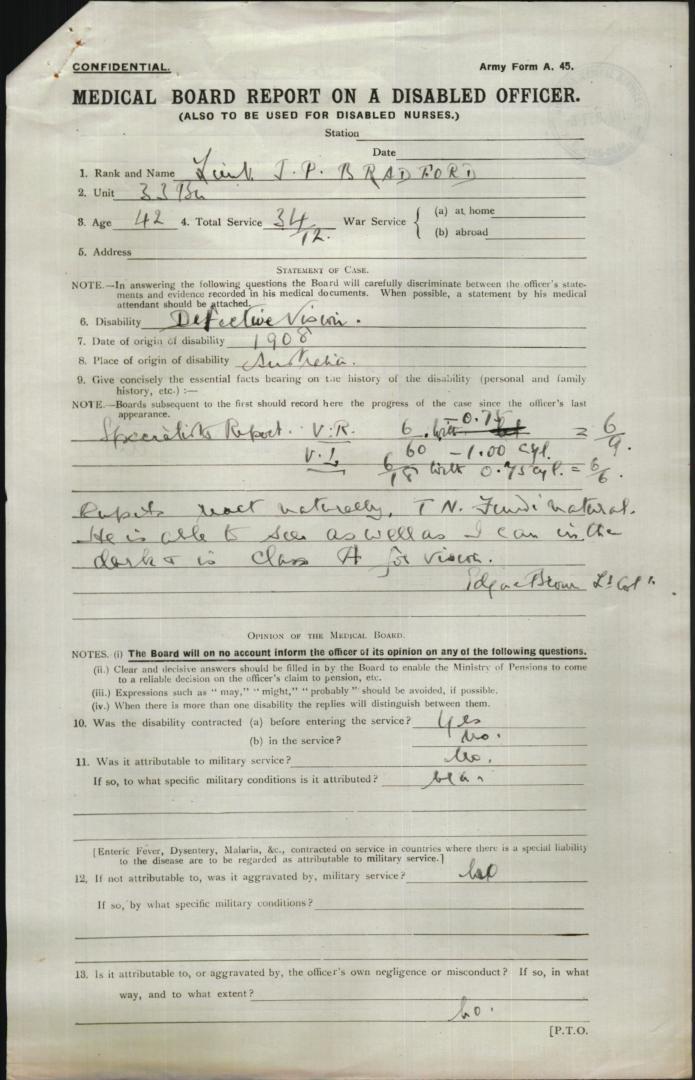 CONFIDENTIAL. Army Form A. 45.
MEDICAL BOARD REPORT ON A DISABLED OFFICER.
(ALSO TO BE USED FOR DISABLED NURSES.)
Station
Date
1. Rank and Name Lieut J. P. BRADFORD
2. Unit 33 Bn
3. Age 42 4. Total Service 3 4/12. War Service { (a) at home
(b) abroad
5. Address
STATEMENT OF CASE.
NOTE.—In answering the following questions the Board will carefully discriminate between the officer's state-
ments and evidence recorded in his medical documents. When possible, a statement by his medical
attendant should be attached.
6. Disability Defective Vision.
7. Date of origin of disability 1908
8. Place of origin of disability Australia.
9. Give concisely the essential facts bearing on the history of the disability (personal and family
history, etc.) :—
NOTE.—Boards subsequent to the first should record here the progress of the case since the officer's last
appearance.
Specialists Report. V.R. 6/60 with -0.75 -1.00 cyl. = 6/9.
V.L 6/18 with 0.75 cyl. = 6/6.
Pupils react naturally, T N. Fundi natural.
He is able to see as well as I can in the
dark & is class A for vision.
Edgar Brown Lt Col.
OPINION OF THE MEDICAL BOARD.
NOTES. (i) The Board will on no account inform the officer of its opinion on any of the following questions.
(ii.) Clear and decisive answers should be filled in by the Board to enable the Ministry of Pensions to come
to a reliable decision on the officer's claim to pension, etc.
(iii.) Expressions such as " may," " might," " probably " should be avoided, if possible.
(iv.) When there is more than one disability the replies will distinguish between them.
10. Was the disability contracted (a) before entering the service? Yes
(b) in the service? No.
11. Was it attributable to military service? No.
If so, to what specific military conditions is it attributed?
[Enteric Fever, Dysentery, Malaria, &c., contracted on service in countries where there is a special liability
to the disease are to be regarded as attributable to military service.]
12. If not attributable to, was it aggravated by, military service? No
If so, by what specific military conditions?
13. Is it attributable to, or aggravated by, the officer's own negligence or misconduct? If so, in what
way, and to what extent?
No.
[P.T.O.